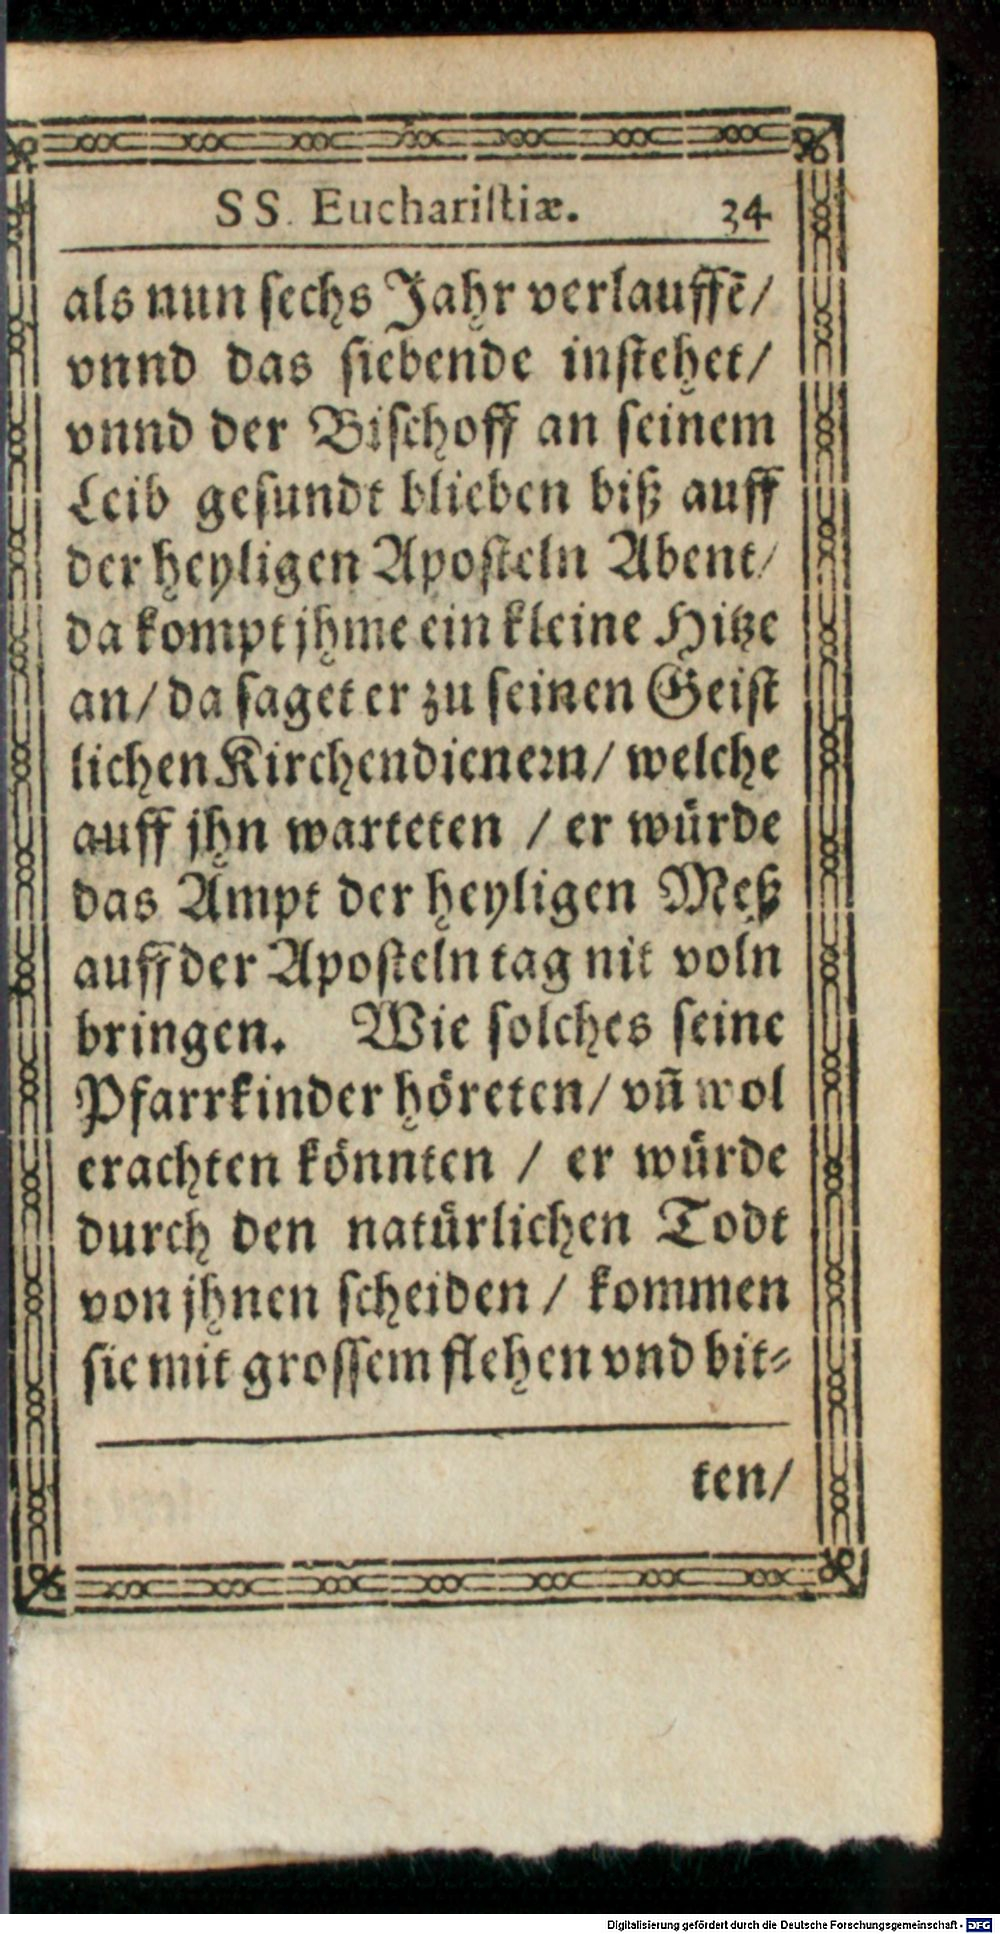 SS. Euchariſtiæ. 34
als nun ſechs Jahr verlauffē/
vnnd das ſiebende inſtehet/
vnnd der Biſchoff an ſeinem
Leib geſundt blieben biß auff
der heyligen Apoſteln Abent/
da kompt jhme ein kleine Hitze
an/ da ſaget er zu ſeinen Geiſt
lichen Kirchendienern/ welche
auff jhn warteten / er würde
das Ampt der heyligen Meß
auff der Apoſteln tag nit voln
bringen. Wie ſolches ſeine
Pfarrkinder höreten/ vñ wol
erachten könnten / er würde
durch den natürlichen Todt
von jhnen ſcheiden / kommen
ſie mit groſſem flehen vnd bit⸗
ten/
Digitalisierung gefördert durch die Deutsche Forschungsgemeinschaft - DFG